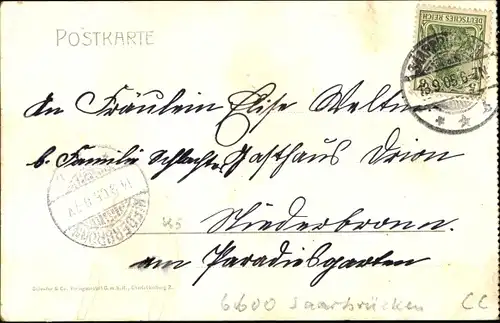 POSTKARTE
DEUTSCHES REICH
An Fräulein Elise Weltin
b. Familie Schlachter Gasthaus Orion
Niederbronn.
am Paradiesgarten
NIEDERBRONN
45
6600 Saarbrücken CC